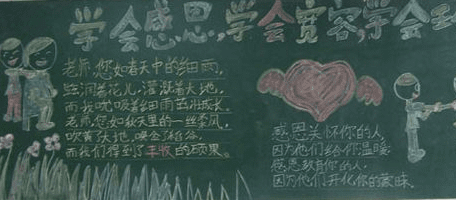 学会感恩,学会宽容,学会
老师,您如春天中的细雨,
滋润着花儿,灌溉着大地,
而我吮吸着细雨茁壮成长。
老师,您如秋天里的一丝季风,
吹黄大地,唤金稻谷,
而我们得到了丰收的硕果。
感恩关怀你的人,
因为他们给你温暖;
感恩教育你的人,
因为他们开化你的蒙昧。